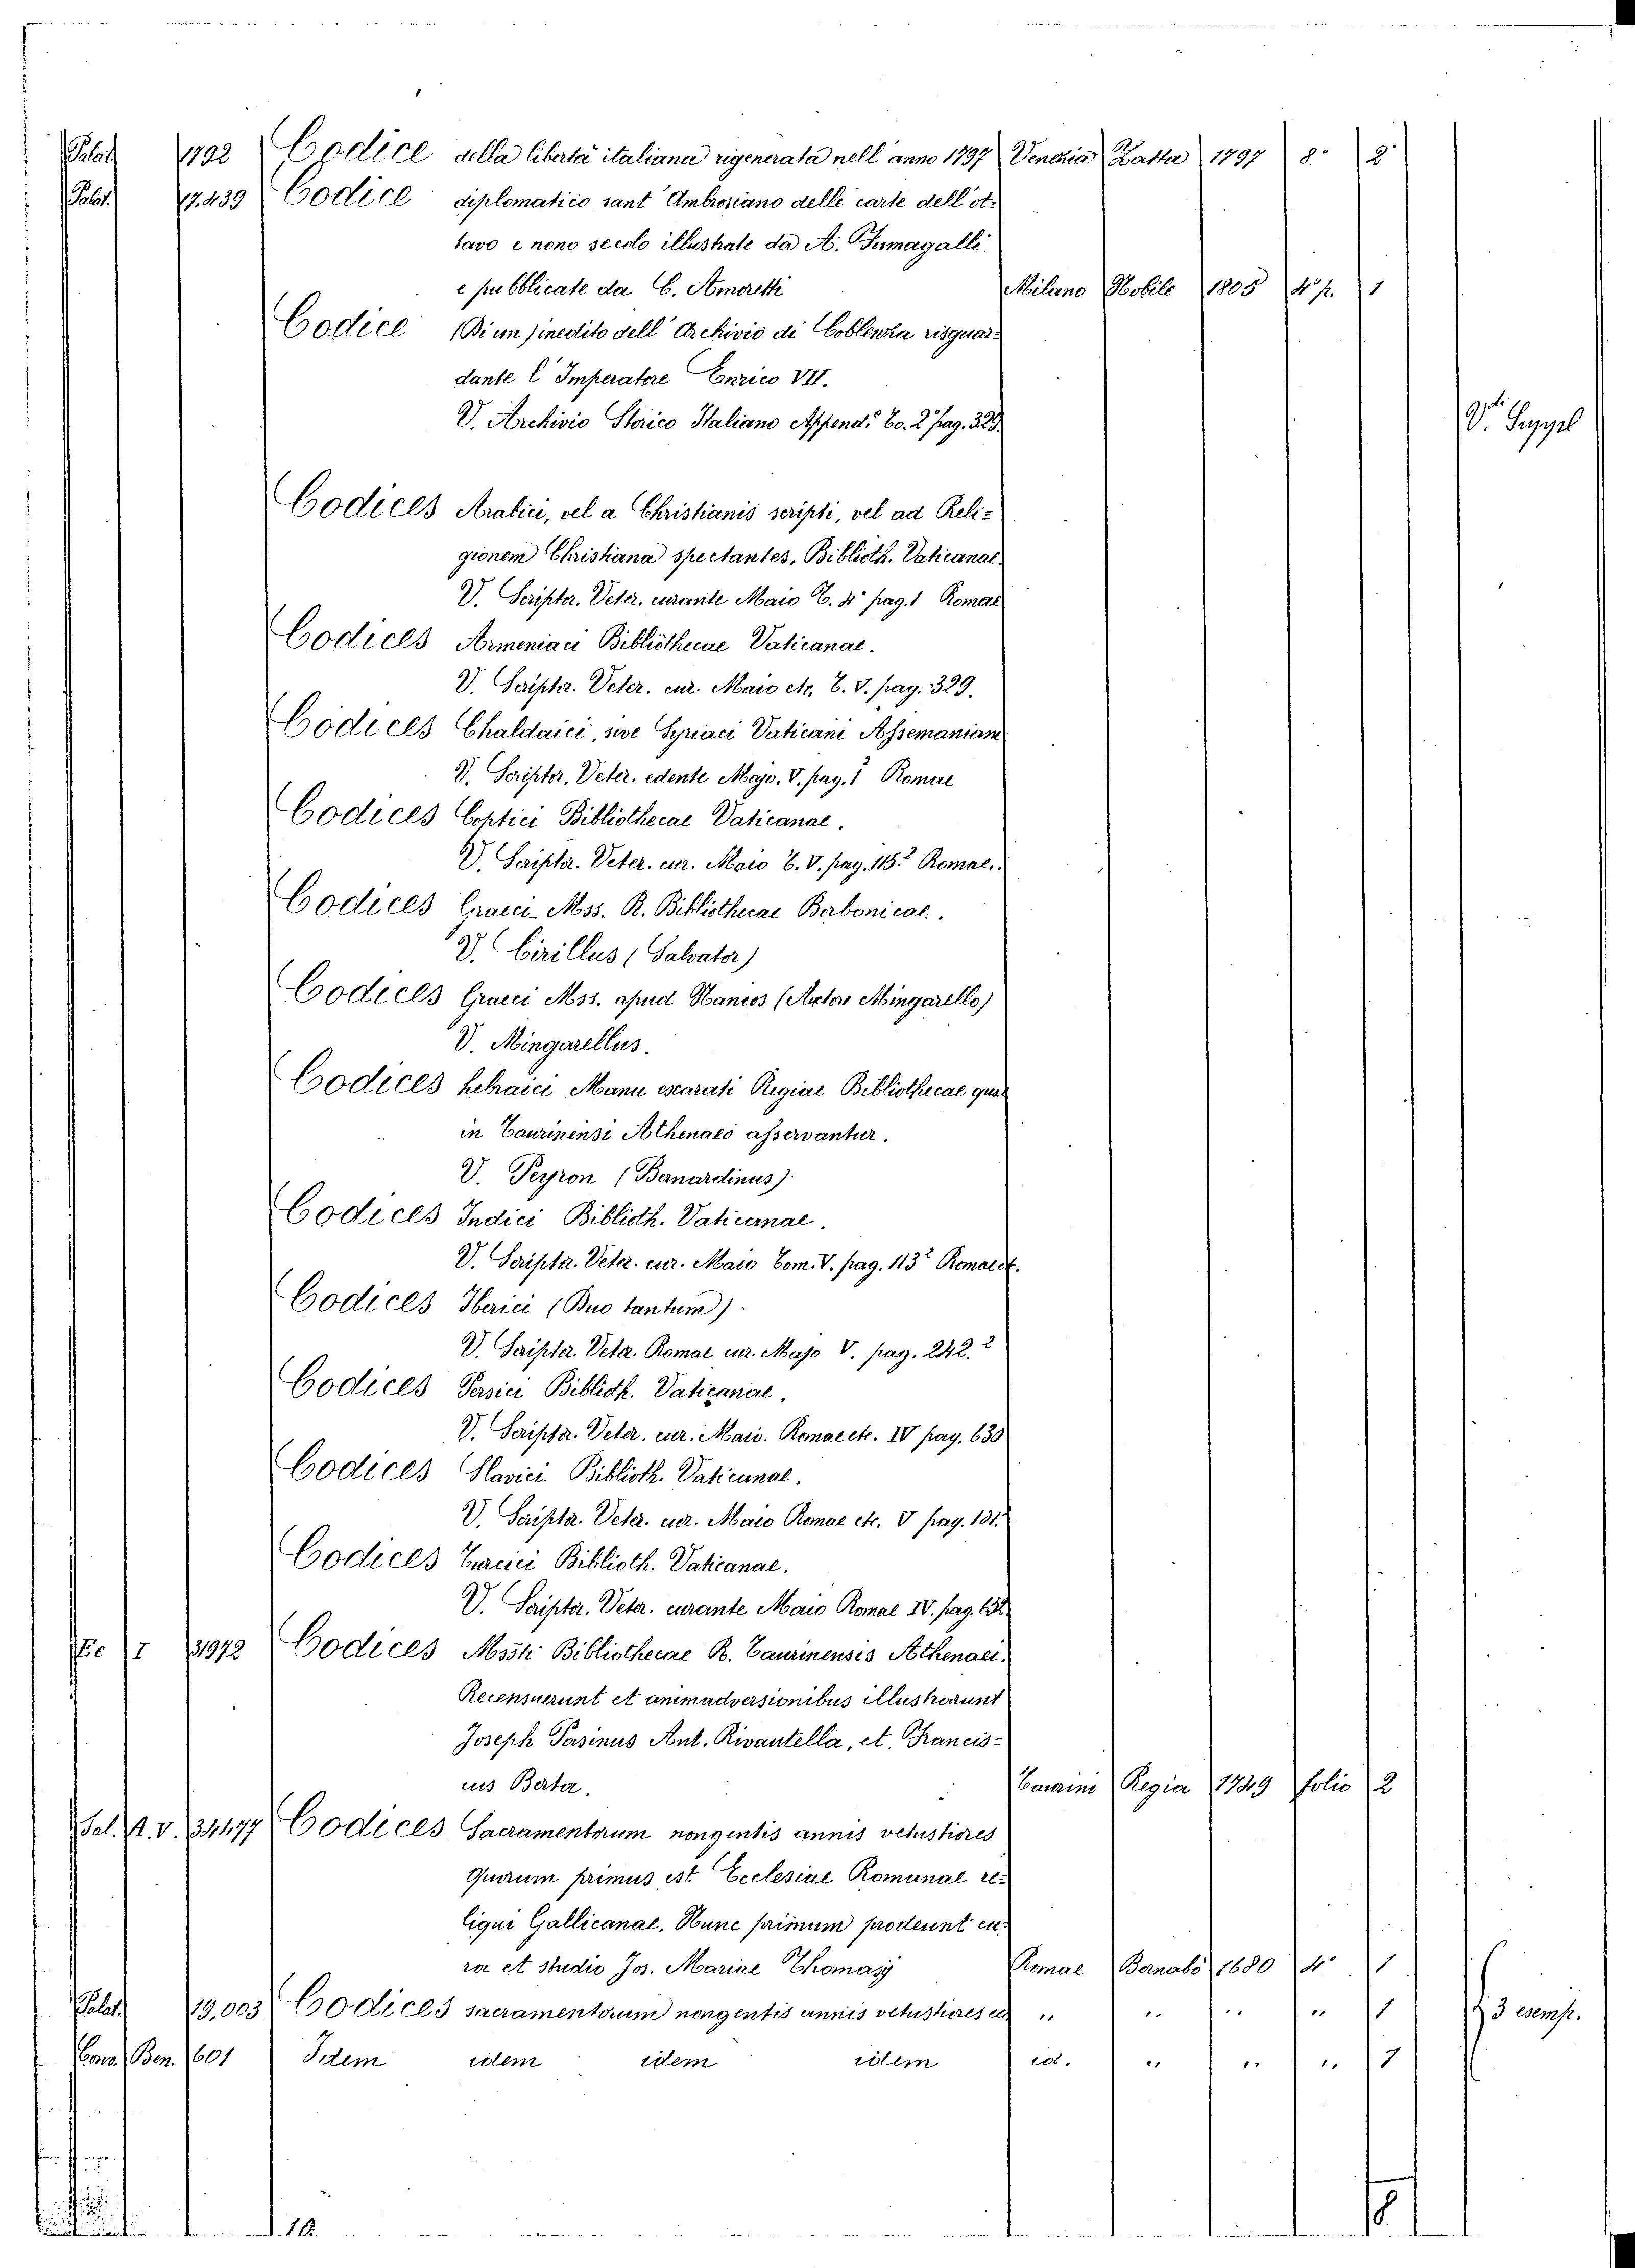 Palat. 1792 Codice della libertà italiana rigenerata nell'anno 1797 Venezia Zatta 1797 8.° 2
Palat. 17.439 Codice diplomatico sant'Ambrosiano delle carte dell'ot-
tavo e nono secolo illustrate da A. Fumagalli
e pubblicate da C. Amoretti Milano Nobile 1805 4° p. 1
Codice (Di un) inedito dell'Archivio di Coblenza risguar-
dante l'Imperatore Enrico VII.
V. Archivio Storico Italiano Append.e To. 2° pag. 323. V.di Suppl
Codices Arabici, vel a Christianis scripti, vel ad Reli-
gionem Christiana spectantes, Biblioth. Vaticanae
V. Scriptor. Veter. curante Maio T. 4° pag. 1 Romae
Codices Armeniaci Bibliothecae Vaticanae.
V. Scriptor. Veter. cur. Maio etc. T. V. pag. 329.
Codices Chaldaici, sive Syriaci Vaticani Assemaniani
V. Scriptor. Veter. edente Majo. V. pag. 1 Romae
Codices Coptici Bibliothecae Vaticanae.
V. Scriptor. Veter. cur. Maio T. V. pag. 115.2 Romae.
Codices Graeci-Mss. R. Bibliothecae Borbonicae.
V. Cirillus (Salvator)
Codices Graeci Mss. apud Nanios (Autore Mingarello)
V. Mingarellus.
Codices hebraici Manu exarati Regiae Bibliothecae quae
in Taurinensi Athenaeo asservantur.
V. Peyron (Bernardinus)
Codices Indici Biblioth. Vaticanae.
V. Scriptor. Veter. cur. Maio Tom. V. pag. 113.2 Romae et.
Codices Iberici (Duo tantum)
V. Scriptor. Veter. Romae cur. Majo V. pag. 242.2
Codices Persici Biblioth. Vaticanae.
V. Scriptor. Veter. cur. Maio. Romae etc. IV pag. 630
Codices Slavici Biblioth. Vaticanae.
V. Scriptor. Veter. cur. Maio Romae etc. V pag. 101.2
Codices Turcici Biblioth. Vaticanae.
V. Scriptor. Veter. curante Maio Romae IV. pag. 638
I 31972 Codices Mssti Bibliothecae R. Taurinensis Athenaei.
Recensuerunt et animadversionibus illustrarunt
Joseph Pasinus Ant. Rivautella, et Francis-
cus Berta. Taurini Regia 1749 folio 2
Sel. A. V. 34477 Codices Sacramentorum nongentis annis vetustiores
Quorum primus est Ecclesiae Romanae re-
liqui Gallicanae. Nunc primum prodeunt cu-
ra et studio Jos. Mariae Thomasij Romae Bernabò 1680 4° 1
Palat. 19,003 Codices sacramentorum nongentis annis vetustiores etc " " " " 1 3 esemp.
Cons. Ben. 601 Idem idem idem idem id. " " " 1